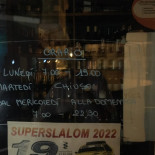 ORARIO
LUNEDÌ 7.00 13.00
MARTEDÌ CHIUSO
DAL MERCOLEDÌ ALLA DOMEN
7.00
SUPERSLALOM 2022
19